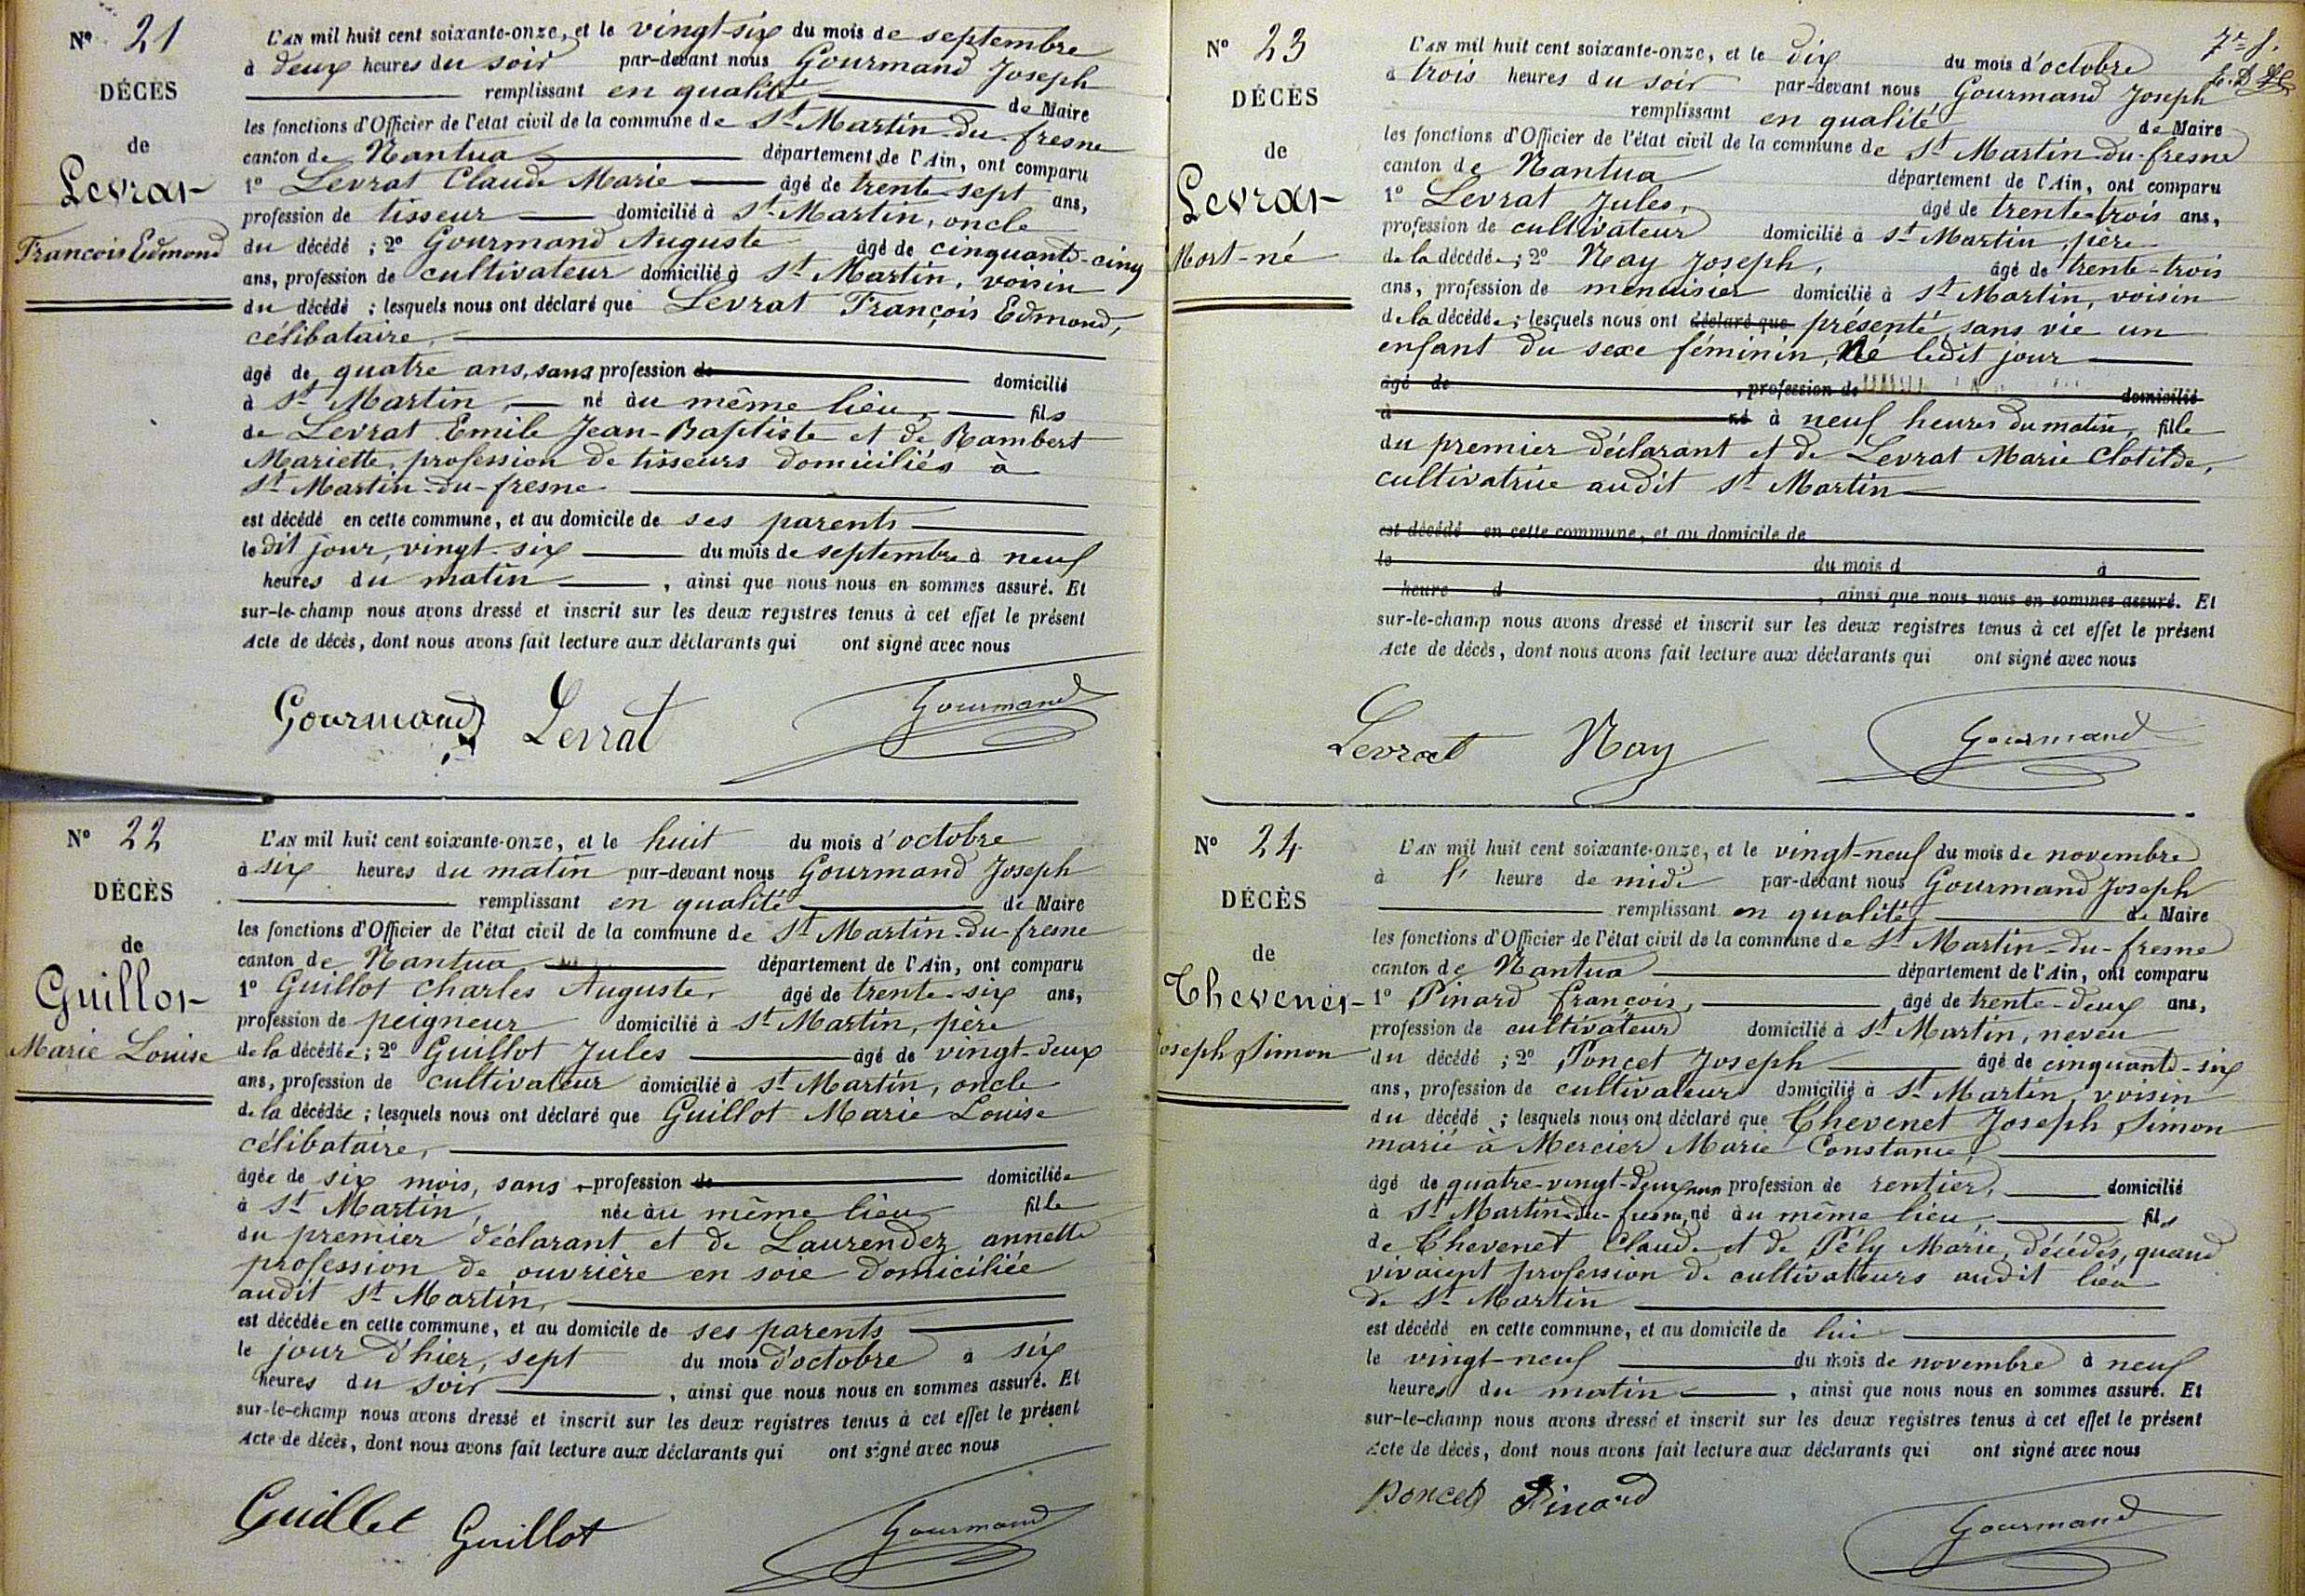 Nº 21
DÉCÈS
de
Levrat
François Edmond
L'AN mil huit cent soixante-onze, et le vingt-six du mois de septembre
à deux heures du soir par-devant nous Gourmand Joseph
remplissant en qualité de Maire
les fonctions d'Officier de l'état civil de la commune de St Martin-du-fresne
canton de Nantua département de l'Ain, ont comparu
1º Levrat Claude Marie âgé de trente-sept ans,
profession de tisseur domicilié à St Martin, oncle
du décédé ; 2º Gourmand Auguste âgé de cinquante-cinq
ans, profession de cultivateur domicilié à St Martin, voisin
du décédé ; lesquels nous ont déclaré que Levrat François Edmond,
célibataire,
âgé de quatre ans, sans profession de domicilié
à St Martin, né au même lieu, fils
de Levrat Emile Jean-Baptiste et de Rambert
Mariette, profession de tisseurs domiciliés à
St Martin-du-fresne
est décédé en cette commune, et au domicile de ses parents
le dit jour, vingt-six du mois de septembre à neuf
heures du matin, ainsi que nous nous en sommes assuré. Et
sur-le-champ nous avons dressé et inscrit sur les deux registres tenus à cet effet le présent
Acte de décès, dont nous avons fait lecture aux déclarants qui ont signé avec nous
Gourmand Levrat Gourmand
Nº 22
DÉCÈS
de
Guillot
Marie Louise
L'AN mil huit cent soixante-onze, et le huit du mois d'octobre
à six heures du matin par-devant nous Gourmand Joseph
remplissant en qualité de Maire
les fonctions d'Officier de l'état civil de la commune de St Martin-du-fresne
canton de Nantua département de l'Ain, ont comparu
1º Guillot Charles Auguste, âgé de trente-six ans,
profession de peigneur domicilié à St Martin, père
de la décédée ; 2º Guillot Jules âgé de vingt-deux
ans, profession de cultivateur domicilié à St Martin, oncle
de la décédée ; lesquels nous ont déclaré que Guillot Marie Louise
célibataire,
âgée de six mois, sans profession de domiciliée
à St Martin, née au même lieu fille
du premier déclarant et de Laurendez annette
profession de ouvrière en soie domiciliée
audit St Martin,
est décédée en cette commune, et au domicile de ses parents
le jour d'hier, sept du mois d'octobre à six
heures du soir, ainsi que nous nous en sommes assuré. Et
sur-le-champ nous avons dressé et inscrit sur les deux registres tenus à cet effet le présent
Acte de décès, dont nous avons fait lecture aux déclarants qui ont signé avec nous
Guillot Guillot Gourmand
Nº 23
DÉCÈS
de
Levrat
Mort-né
L'AN mil huit cent soixante-onze, et le dix du mois d'octobre
à trois heures du soir par-devant nous Gourmand Joseph
remplissant en qualité de Maire
les fonctions d'Officier de l'état civil de la commune de St Martin-du-fresne
canton de Nantua département de l'Ain, ont comparu
1º Levrat Jules, âgé de trente-trois ans,
profession de cultivateur domicilié à St Martin, père
de la décédée ; 2º Nay Joseph, âgé de trente-trois
ans, profession de menuisier domicilié à St Martin, voisin
de la décédée ; lesquels nous ont déclaré que présenté, sans vie un
enfant du sexe féminin, Né ledit jour
âgé de, profession de domicilié
à né à neuf heures du matin, fille
du premier déclarant et de Levrat Marie Clotilde,
cultivatrice audit St Martin
est décédé en cette commune, et au domicile de
le du mois d à
heure d, ainsi que nous nous en sommes assuré. Et
sur-le-champ nous avons dressé et inscrit sur les deux registres tenus à cet effet le présent
Acte de décès, dont nous avons fait lecture aux déclarants qui ont signé avec nous
Levrat Nay Gourmand
Nº 24
DÉCÈS
de
Chevenet
Joseph Simon
L'AN mil huit cent soixante-onze, et le vingt-neuf du mois de novembre
à l' heure de midi par-devant nous Gourmand Joseph
remplissant en qualité de Maire
les fonctions d'Officier de l'état civil de la commune de St Martin-du-fresne
canton de Nantua département de l'Ain, ont comparu
1º Pinard françois, âgé de trente-deux ans,
profession de cultivateur domicilié à St Martin, neveu
du décédé ; 2º Poncet Joseph âgé de cinquante-six
ans, profession de cultivateur domicilié à St Martin, voisin
du décédé ; lesquels nous ont déclaré que Chevenet Joseph Simon
marié à Mercier Marie Constance,
âgé de quatre-vingt-deux ans profession de rentier, domicilié
à St Martin-du-fresne, né au même lieu, fils
de Chevenet Claude et de Pély Marie, décédés, quand
vivaient profession de cultivateurs audit lieu
de St Martin
est décédé en cette commune, et au domicile de lui
le vingt-neuf du mois de novembre à neuf
heures du matin, ainsi que nous nous en sommes assuré. Et
sur-le-champ nous avons dressé et inscrit sur les deux registres tenus à cet effet le présent
Acte de décès, dont nous avons fait lecture aux déclarants qui ont signé avec nous
Poncet Pinard Gourmand